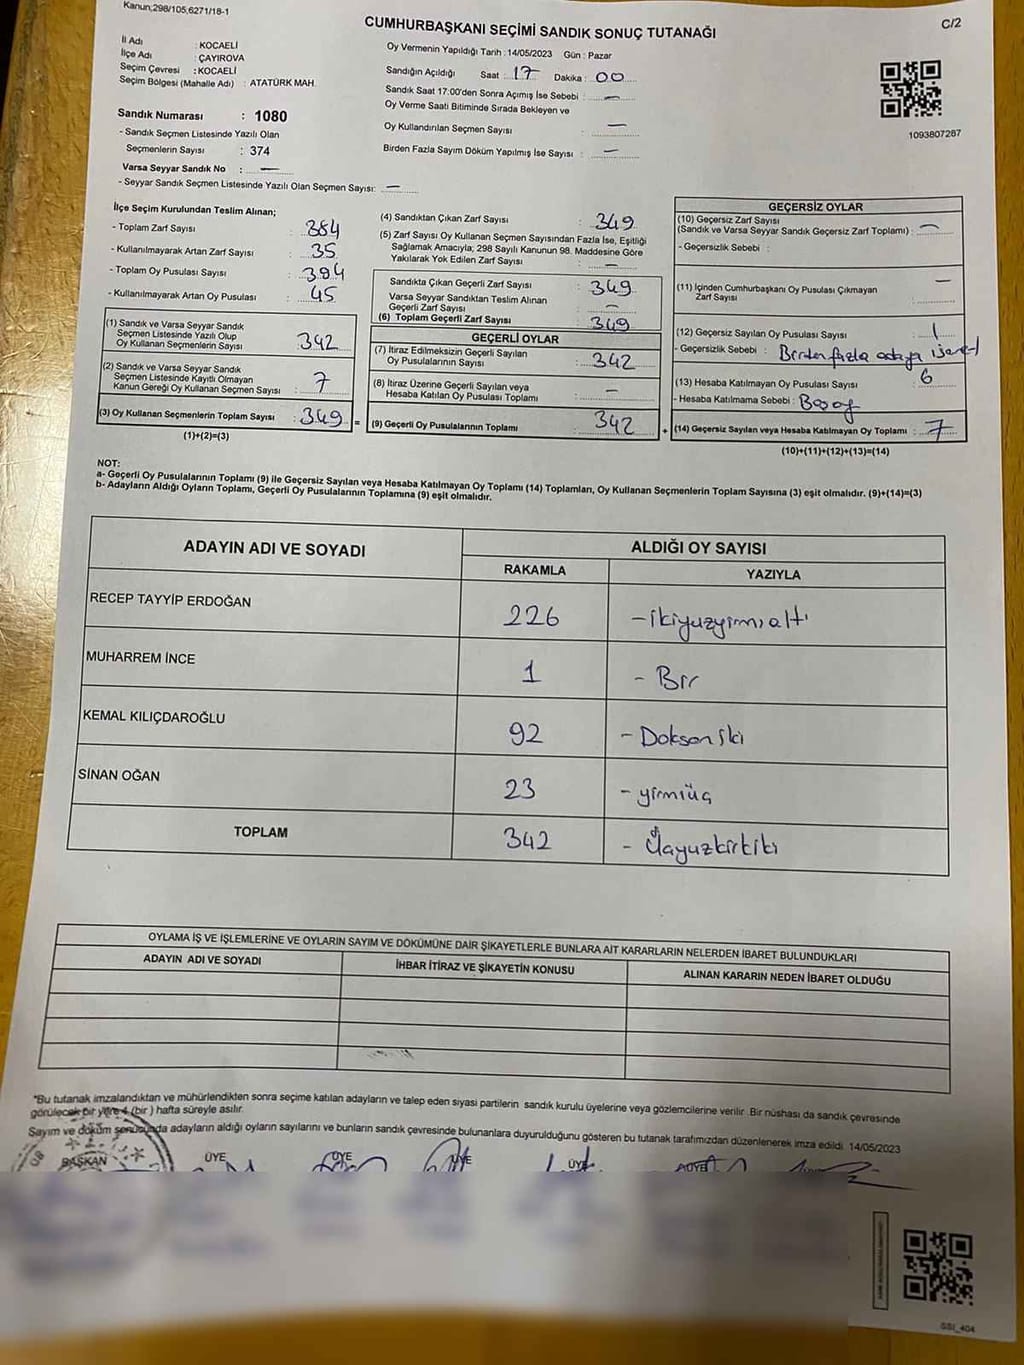 Kanun;298/105,6271/18-1
CUMHURBAŞKANI SEÇİMİ SANDIK SONUÇ TUTANAĞI
C/2
İl Adı : KOCAELİ
İlçe Adı : ÇAYIROVA
Seçim Çevresi : KOCAELİ
Seçim Bölgesi (Mahalle Adı) : ATATÜRK MAH.
Sandık Numarası : 1080
- Sandık Seçmen Listesinde Yazılı Olan
Seçmenlerin Sayısı : 374
Varsa Seyyar Sandık No : —
- Seyyar Sandık Seçmen Listesinde Yazılı Olan Seçmen Sayısı: —
Oy Vermenin Yapıldığı Tarih : 14/05/2023 Gün : Pazar
Sandığın Açıldığı Saat : 17 Dakika : 00
Sandık Saat 17:00'den Sonra Açılmış İse Sebebi : —
Oy Verme Saati Bitiminde Sırada Bekleyen ve
Oy Kullandırılan Seçmen Sayısı : —
Birden Fazla Sayım Döküm Yapılmış İse Sayısı : —
1093807287
İlçe Seçim Kurulundan Teslim Alınan;
- Toplam Zarf Sayısı : 384
- Kullanılmayarak Artan Zarf Sayısı : 35
- Toplam Oy Pusulası Sayısı : 394
- Kullanılmayarak Artan Oy Pusulası : 45
(1) Sandık ve Varsa Seyyar Sandık
Seçmen Listesinde Yazılı Olup
Oy Kullanan Seçmenlerin Sayısı : 342
(2) Sandık ve Varsa Seyyar Sandık
Seçmen Listesinde Kayıtlı Olmayan
Kanun Gereği Oy Kullanan Seçmen Sayısı : 7
(3) Oy Kullanan Seçmenlerin Toplam Sayısı : 349 =
(1)+(2)=(3)
(4) Sandıktan Çıkan Zarf Sayısı : 349
(5) Zarf Sayısı Oy Kullanan Seçmen Sayısından Fazla İse, Eşitliği
Sağlamak Amacıyla; 298 Sayılı Kanunun 98. Maddesine Göre
Yakılarak Yok Edilen Zarf Sayısı : —
Sandıkta Çıkan Geçerli Zarf Sayısı : 349
Varsa Seyyar Sandıktan Teslim Alınan
Geçerli Zarf Sayısı : —
(6) Toplam Geçerli Zarf Sayısı : 349
GEÇERLİ OYLAR
(7) İtiraz Edilmeksizin Geçerli Sayılan
Oy Pusulalarının Sayısı : 342
(8) İtiraz Üzerine Geçerli Sayılan veya
Hesaba Katılan Oy Pusulası Toplamı : —
(9) Geçerli Oy Pusulalarının Toplamı : 342 +
GEÇERSİZ OYLAR
(10) Geçersiz Zarf Sayısı
(Sandık ve Varsa Seyyar Sandık Geçersiz Zarf Toplamı) : —
- Geçersizlik Sebebi :
(11) İçinden Cumhurbaşkanı Oy Pusulası Çıkmayan
Zarf Sayısı : —
(12) Geçersiz Sayılan Oy Pusulası Sayısı : 1
- Geçersizlik Sebebi : Birden fazla adaya işaret
(13) Hesaba Katılmayan Oy Pusulası Sayısı : 6
- Hesaba Katılmama Sebebi : Boşoy
(14) Geçersiz Sayılan veya Hesaba Katılmayan Oy Toplamı : 7
(10)+(11)+(12)+(13)=(14)
NOT:
a- Geçerli Oy Pusulalarının Toplamı (9) ile Geçersiz Sayılan veya Hesaba Katılmayan Oy Toplamı (14) Toplamları, Oy Kullanan Seçmenlerin Toplam Sayısına (3) eşit olmalıdır. (9)+(14)=(3)
b- Adayların Aldığı Oyların Toplamı, Geçerli Oy Pusulalarının Toplamına (9) eşit olmalıdır.
ADAYIN ADI VE SOYADI
ALDIĞI OY SAYISI
RAKAMLA YAZIYLA
RECEP TAYYİP ERDOĞAN 226 - ikiyuzyirmialtı
MUHARREM İNCE 1 - Bir
KEMAL KILIÇDAROĞLU 92 - Doksan iki
SİNAN OĞAN 23 - yirmiüç
TOPLAM 342 - Üçyuzkırkiki
OYLAMA İŞ VE İŞLEMLERİNE VE OYLARIN SAYIM VE DÖKÜMÜNE DAİR ŞİKAYETLERLE BUNLARA AİT KARARLARIN NELERDEN İBARET BULUNDUKLARI
ADAYIN ADI VE SOYADI İHBAR İTİRAZ VE ŞİKAYETİN KONUSU ALINAN KARARIN NEDEN İBARET OLDUĞU
*Bu tutanak imzalandıktan ve mühürlendikten sonra seçime katılan adayların ve talep eden siyasi partilerin sandık kurulu üyelerine veya gözlemcilerine verilir. Bir nüshası da sandık çevresinde
görülecek bir yere 1 (bir ) hafta süreyle asılır.
Sayım ve döküm sonucunda adayların aldığı oyların sayılarını ve bunların sandık çevresinde bulunanlara duyurulduğunu gösteren bu tutanak tarafımızdan düzenlenerek imza edildi 14/05/2023
BAŞKAN ÜYE ÜYE ÜYE ÜYE ÜYE
SSİ_404